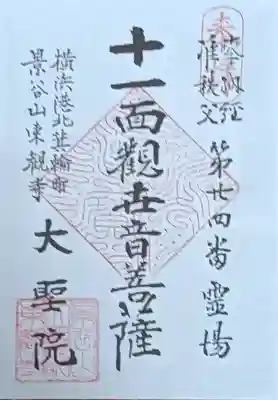 准秩父
第廿四番霊場
十一面觀世音菩薩
横浜港北箕輪町
景谷山東観寺
大聖院